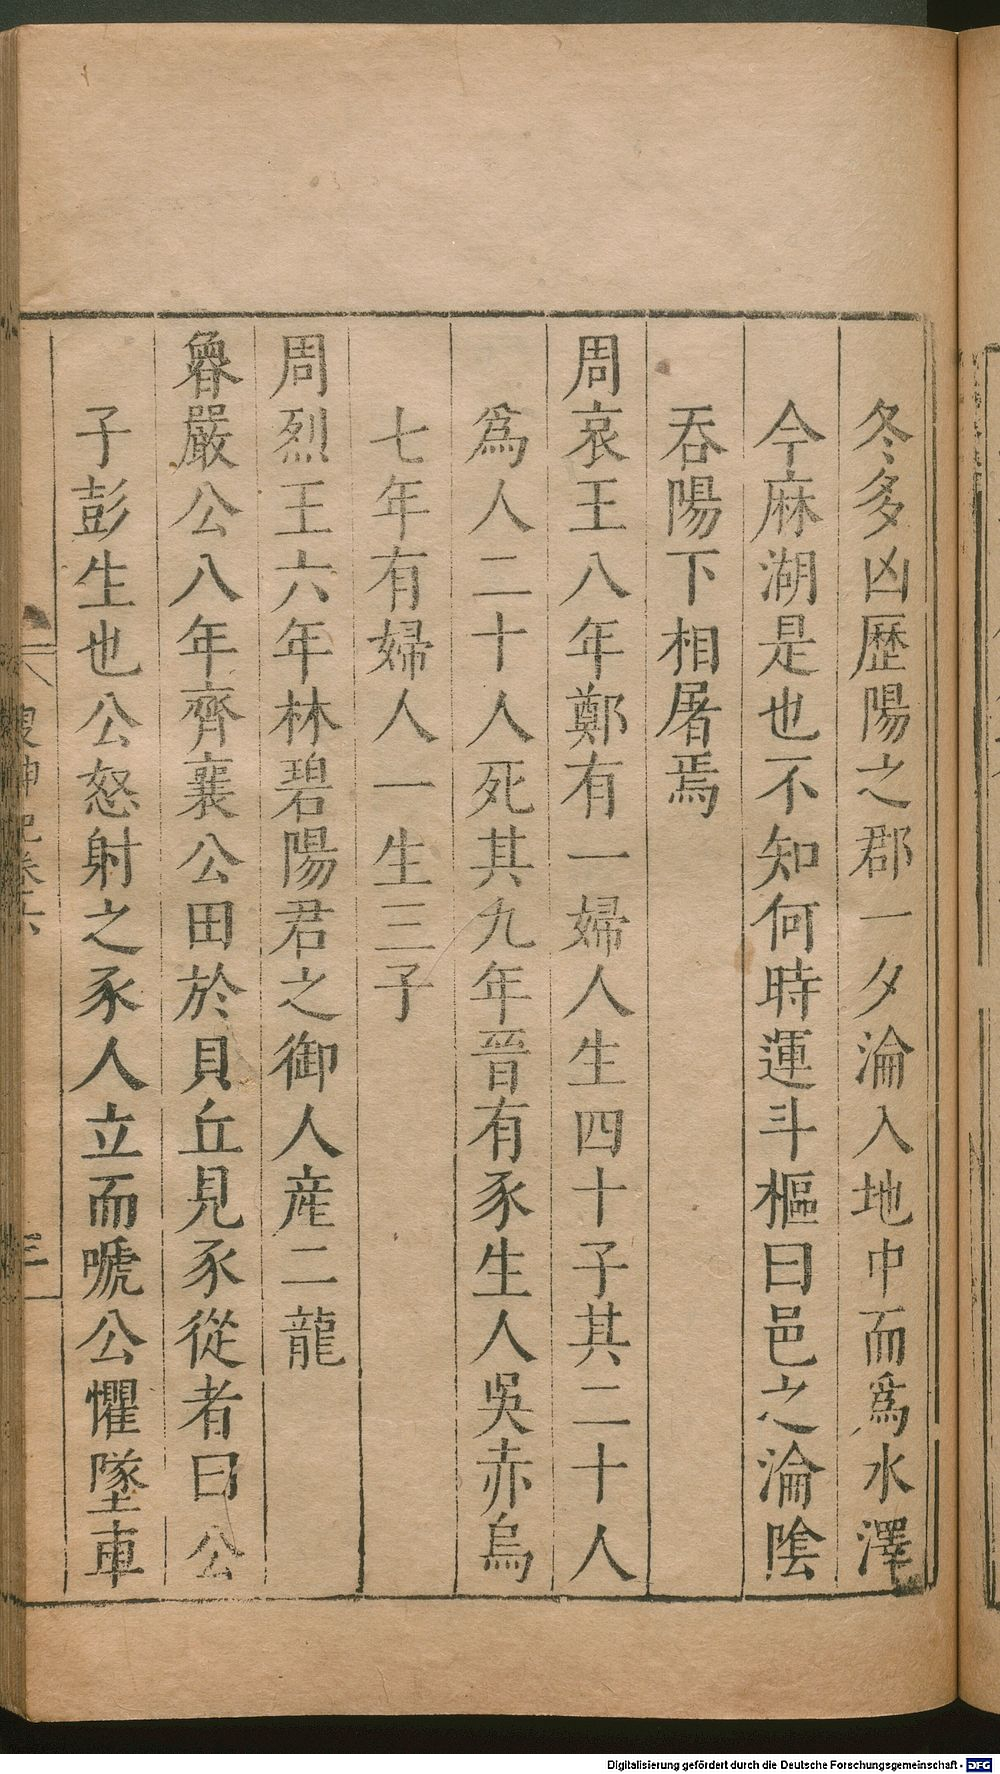 冬多凶歷陽之郡一夕淪入地中而爲水澤
今麻湖是也不知何時運斗樞曰邑之淪隂
吞陽下相屠焉
周哀王八年鄭有一婦人生四十子其二十人
爲人二十人死其九年晉有豕生人吳赤烏
七年有婦人一生三子
周烈王六年林碧陽君之御人産二龍
魯嚴公八年齊襄公田於貝丘見豕從者曰公
子彭生也公怒射之豕人立而嗁公懼墜車
搜神記卷六
三
Digitalisierung gefördert durch die Deutsche Forschungsgemeinschaft - DFG